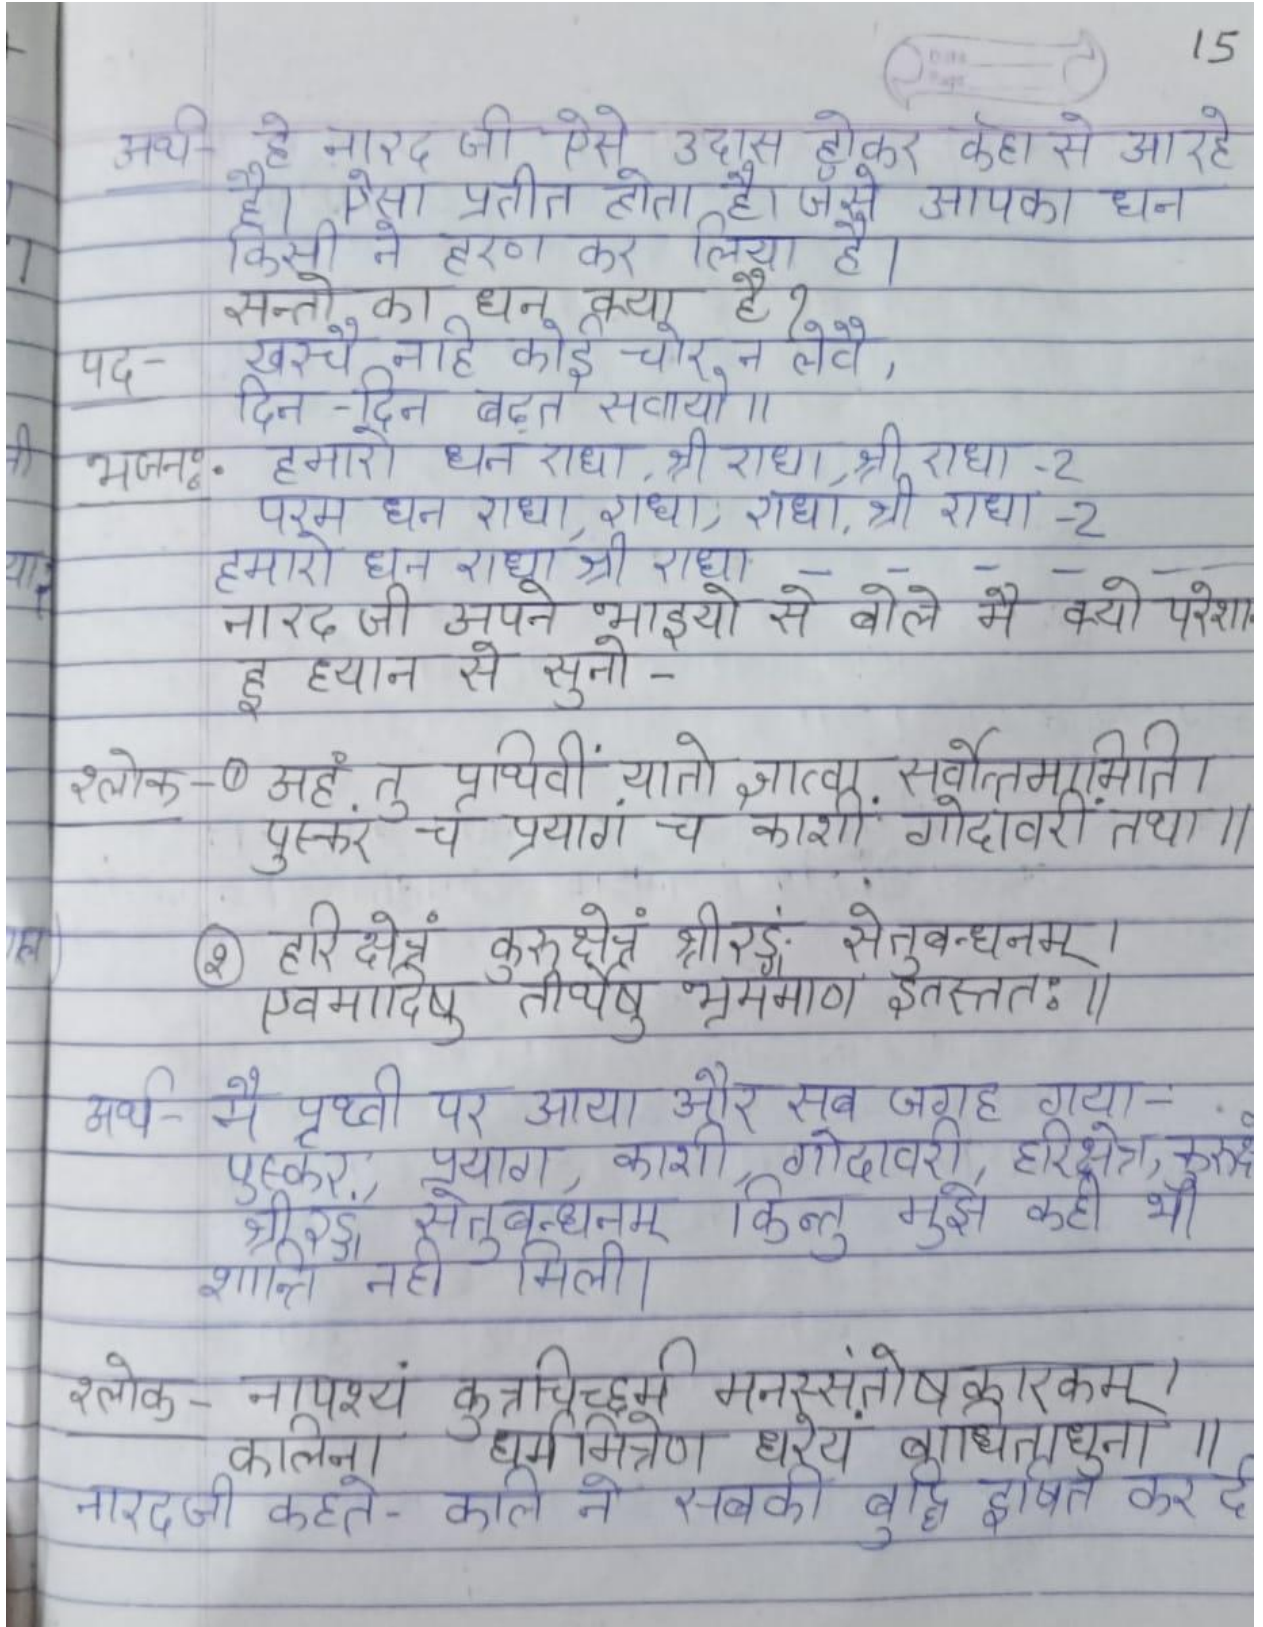 15
अर्थ- हे नारद जी ऐसे उदास होकर कहा से आ रहे
है। ऐसा प्रतीत होता है। जैसे आपका धन
किसी ने हरण कर लिया है।
सन्तो का धन क्या है?
पद- खरचै नाहि कोई चोर न लेवै,
दिन-दिन बढ़त सवायो॥
भजनः- हमारो धन राधा, श्री राधा, श्री राधा -2
परम धन राधा, राधा, राधा, श्री राधा -2
हमारो धन राधा श्री राधा - - - - -
नारद जी अपने भाइयो से बोले मै क्यो परेशान
हू ध्यान से सुनो -
श्लोक-① अहं तु पृथिवीं यातो ज्ञात्वा सर्वोत्तमामिति।
पुस्करं च प्रयागं च काशीं गोदावरीं तथा॥
② हरिक्षेत्रं कुरुक्षेत्रं श्रीरङ्गं सेतुबन्धनम्।
एवमादिषु तीर्थेषु भ्रममाण इतस्ततः॥
अर्थ- मै पृथ्वी पर आया और सब जगह गया-
पुस्कर, प्रयाग, काशी, गोदावरी, हरिक्षेत्र, कुरुक्षे
श्रीरङ्ग, सेतुबन्धनम् किन्तु मुझे कही भी
शान्ति नही मिली।
श्लोक- नापश्यं कुत्रचिच्छर्म मनस्संतोषकारकम्।
कलिना धर्ममित्रेण धरेयं बाधिताधुना॥
नारदजी कहते- कलि ने सबकी बुद्धि दूषित कर दी